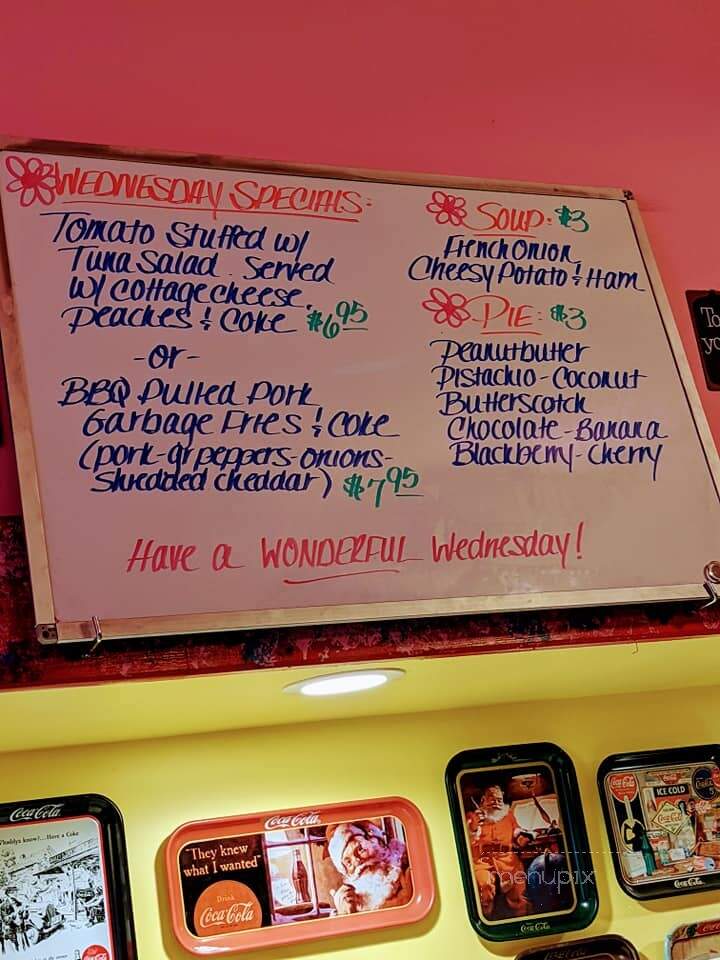 WEDNESDAY SPECIALS:
Tomato Stuffed w/
Tuna Salad. Served
w/ cottage cheese,
peaches & Coke $6.95
-or-
BBQ Pulled Pork
Garbage Fries & Coke
(pork-gr peppers-onions-
Shredded cheddar) $7.95
SOUP: $3
French Onion
Cheesy Potato & Ham
PIE: $3
Peanutbutter
Pistachio-Coconut
Butterscotch
Chocolate-Banana
Blackberry-Cherry
Have a WONDERFUL Wednesday!
To
yo
Coca-Cola
Have a Coke
Coca-Cola
"They knew
what I wanted"
Drink
Coca-Cola
Coca-Cola
ICE COLD
Coca-Cola
Coca-Cola
menupix